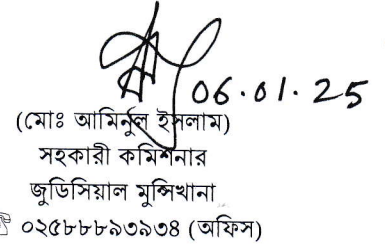 06.01.25
(মোঃ আমিনুল ইসলাম)
সহকারী কমিশনার
জুডিসিয়াল মুন্সিখানা
☎ ০২৫৮৮৮৯৩৯৩৪ (অফিস)